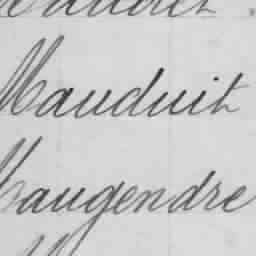 Mauduit
Maugendre